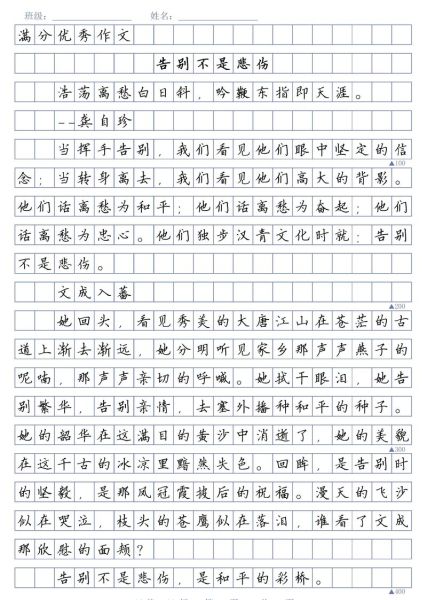 班级： 姓名：
满分优秀作文
告别不是悲伤
浩荡离愁白日斜，吟鞭东指即天涯。
--龚自珍
当挥手告别，我们看见他们眼中坚定的信
▲100
念；当转身离去，我们看见他们高大的背影。
他们话离愁为和平；他们话离愁为奋起；他们
话离愁为忠心。他们独步汉青文化时就：告别
不是悲伤。
文成入蕃
▲200
她回头，看见秀美的大唐江山在苍茫的古
道上渐去渐远，她分明听见家乡那声声燕子的
呢喃，那声声亲切的呼喊。她拭干眼泪，她告
别繁华，告别亲情，去塞外播种和平的种子。
她的韶华在这满目的黄沙中消逝了，她的美貌
▲300
在这千古的冰凉里黯然失色。回眸，是告别时
的坚毅，是那凤冠霞披后的祝福。漫天的飞沙
似在哭泣，枝头的苍鹰似在落泪，谁看了文成
那欣慰的面颊？
告别不是悲伤，是和平的彩桥。
▲400